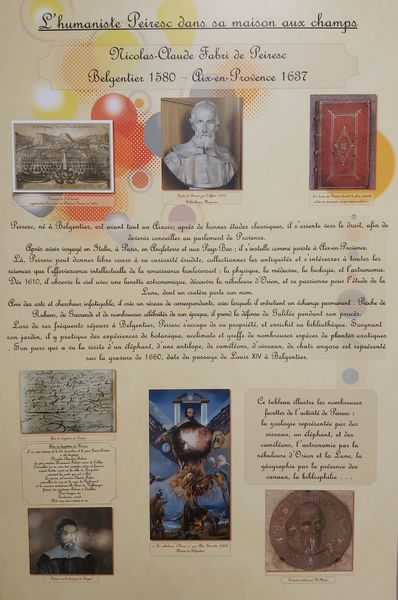 L'humaniste Peiresc dans sa maison aux champs
Nicolas-Claude Fabri de Peiresc
Belgentier 1580 - Aix-en-Provence 1637
Peiresc, né à Belgentier, est avant tout un Aixois; après de bonnes études classiques, il s'oriente vers le droit, afin de
devenir conseiller au parlement de Provence.
Après avoir voyagé en Italie, à Paris, en Angleterre et aux Pays-Bas ; il s'installe comme juriste à Aix-en-Provence.
Là, Peiresc peut donner libre cours à sa curiosité érudite, collectionner les antiquités et s'intéresser à toutes les
sciences que l'effervescence intellectuelle de la renaissance bouleversait : la physique, la médecine, la biologie, et l'astronomie.
Dès 1610, il observe le ciel avec une lunette astronomique, découvre la nébuleuse d'Orion, et se passionne pour l'étude de la
Lune, dont un cratère porte son nom.
Ami des arts et chercheur infatigable, il crée un réseau de correspondants, avec lesquels il entretient un échange permanent : Proche de
Rubens, de Gassendi et de nombreuses célébrités de son époque, il prend la défense de Galilée pendant son procès.
Lors de ses fréquents séjours à Belgentier, Peiresc s'occupe de sa propriété, et enrichit sa bibliothèque. Soignant
son jardin, il y pratique des expériences de botanique, acclimate et greffe de nombreuses espèces de plantes exotiques
. Son parc qui a eu la visite d'un éléphant, d'une antilope, de caméléons, d'oiseaux, de chats angora est représenté
sur la gravure de 1660, date du passage de Louis XIV à Belgentier.
Ce tableau illustre les nombreuses
facettes de l'activité de Peiresc :
la zoologie représentée par des
oiseaux, un éléphant, et des
caméléons, l'astronomie par la
nébuleuse d'Orion et la Lune, la
géographie par la présence des
canaux, la bibliophilie . . .
Acte de baptême de Peiresc